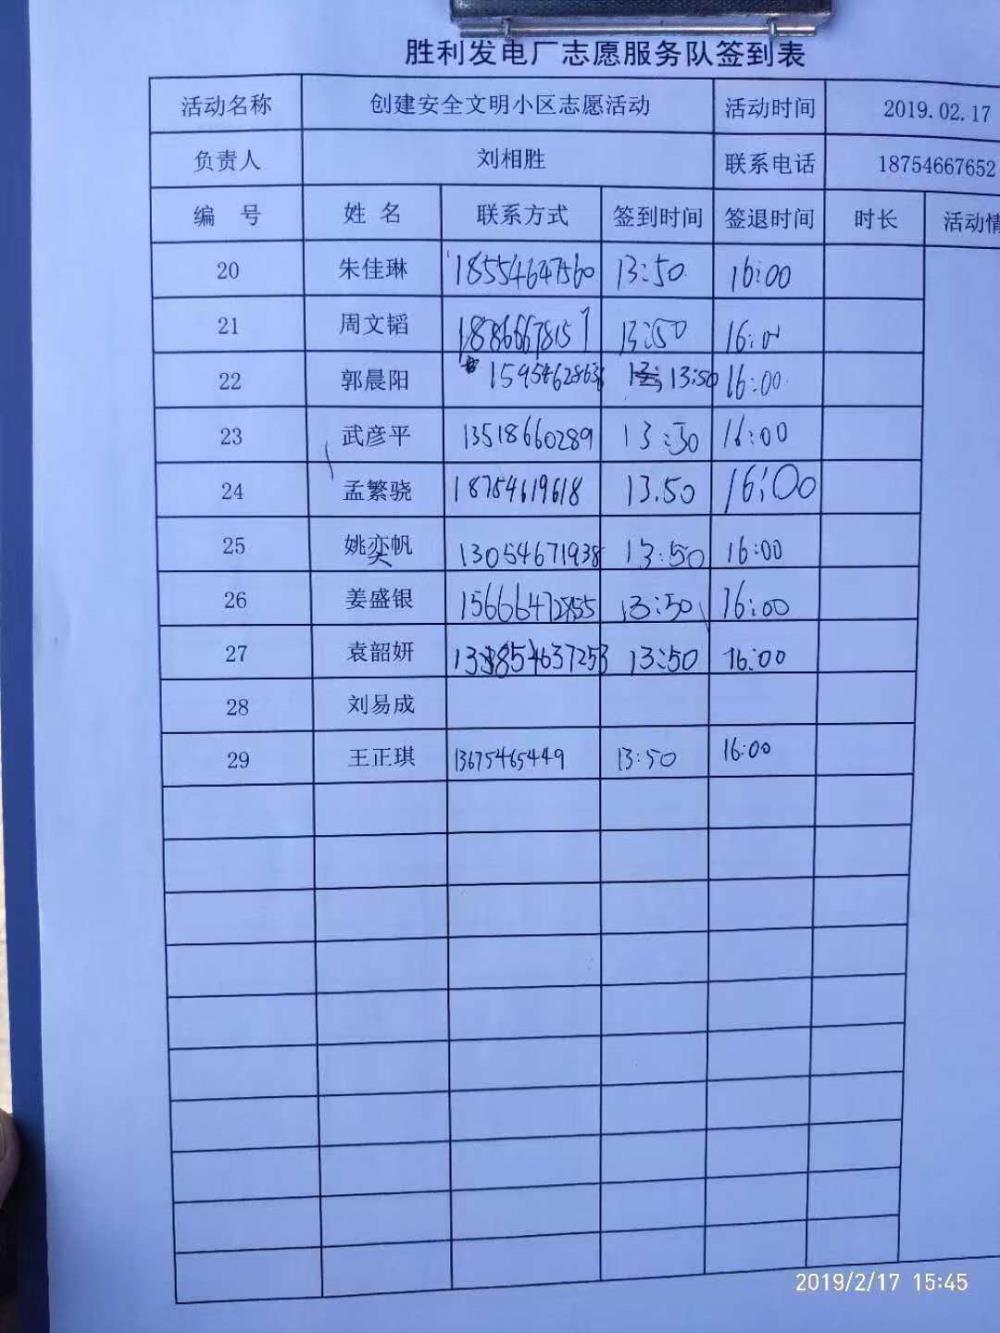 胜利发电厂志愿服务队签到表
活动名称 创建安全文明小区志愿活动 活动时间 2019.02.17
负责人 刘相胜 联系电话 18754667652
编 号 姓 名 联系方式 签到时间 签退时间 时长 活动情
20 朱佳琳 18554647560 13:50 16:00
21 周文韬 18786667815 13:50 16:00
22 郭晨阳 13:50 16:00
23 武彦平 13518660289 13:50 16:00
24 孟繁骁 18754619618 13.50 16:00
25 姚奕帆 13054671938 13:50 16:00
26 姜盛银 13:50 16:00
27 袁韶妍 13:50 16:00
28 刘易成
29 王正琪 13675465449 13:50 16:00
2019/2/17 15:45